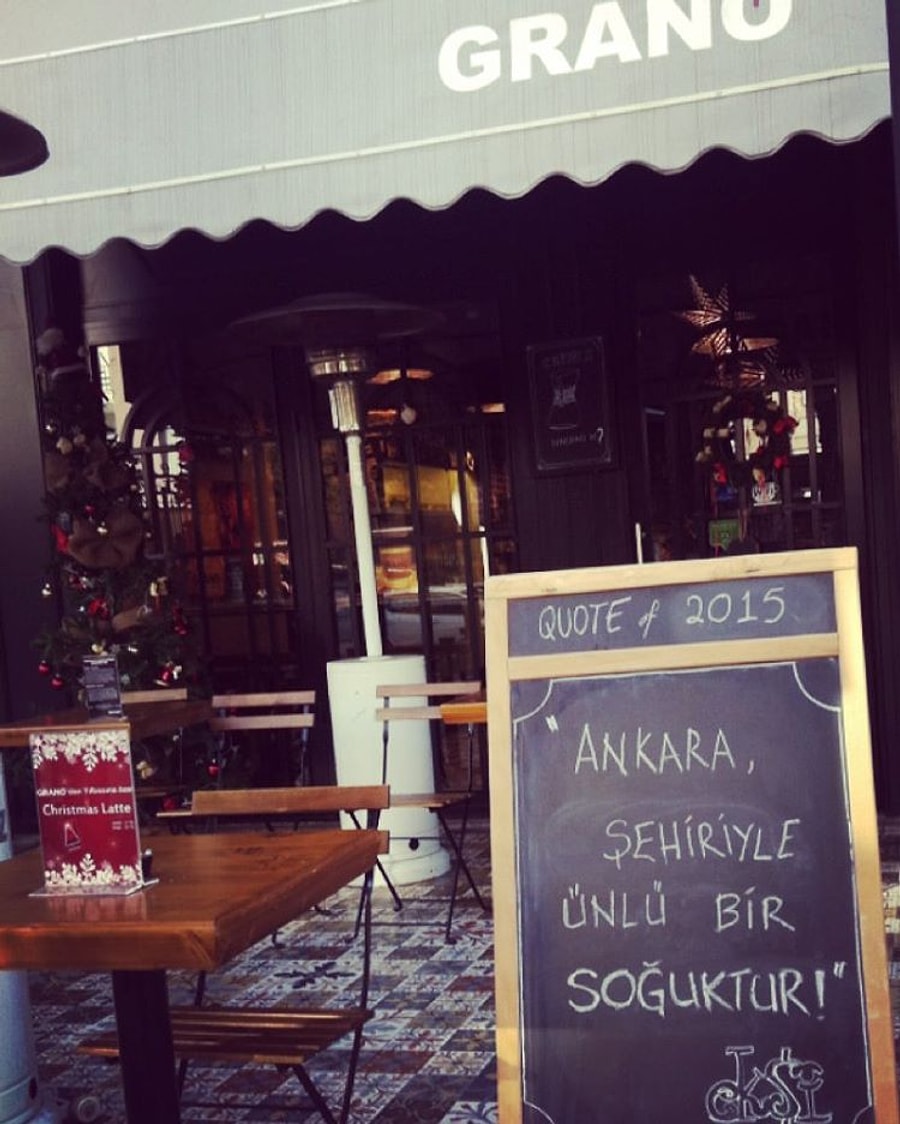 GRANO
QUOTE of 2015
"ANKARA,
ŞEHİRİYLE
ÜNLÜ BİR
SOĞUKTUR!"
Christmas Latte